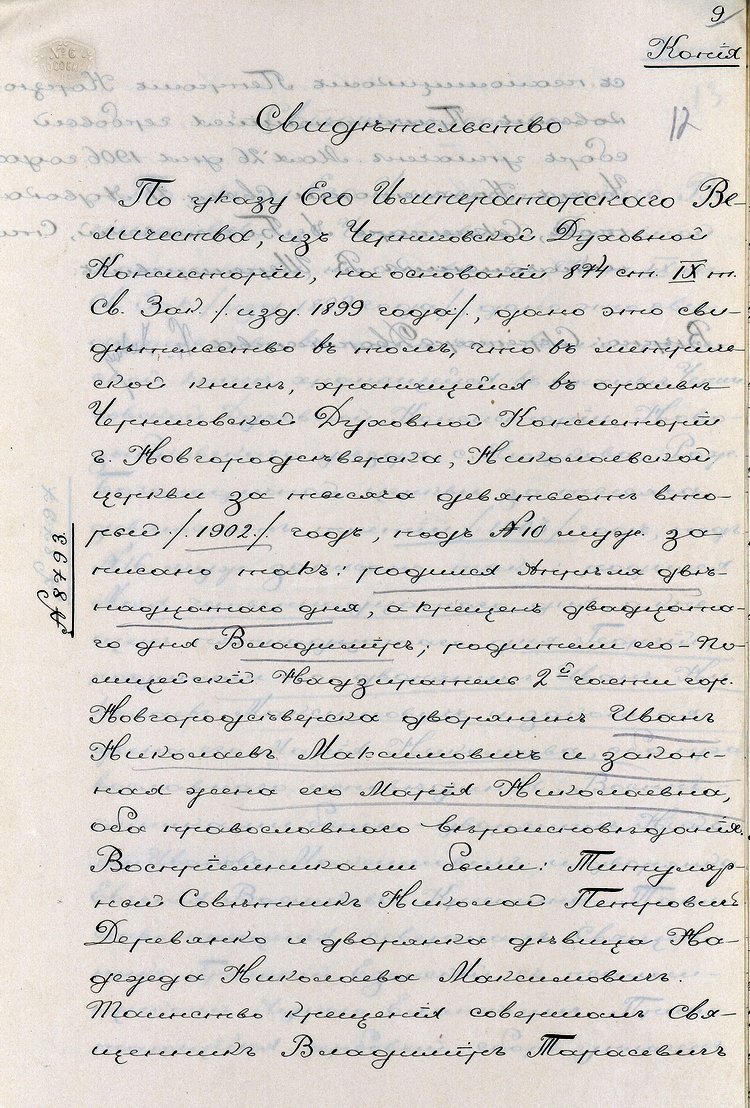 9
Копія
12
Свидѣтельство
По указу Его Императорскаго Ве-
личества, изъ Черниговской Духовной
Консисторіи, на основаніи 874 ст. IX т.
Св. Зак. /. изд. 1899 года/., дано это сви-
дѣтельство въ томъ, что въ метриче-
ской книгѣ, хранящейся въ архивѣ
Черниговской Духовной Консисторіи
г. Новгородсѣверска, Николаевской
церкви за тысяча девятьсотъ вто-
рый /. 1902./ годъ, подъ №10 муж. за-
писано такъ: родился Апрѣля двѣ-
надцатаго дня, а крещенъ двадцата-
го дня Владиміръ; родители его - По-
лицейскій Надзиратель 2й части гор.
Новгородсѣверска дворянинъ Иванъ
Николаевъ Максимовичъ и закон-
ная жена его Марія Николаевна,
оба православнаго вѣроисповѣданія.
Воспріемниками были: Титуляр-
ный Совѣтникъ Николай Петровичъ
Деревянко и дворянка дѣвица На-
дежда Николаева Максимовичъ.
Таинство крещенія совершалъ Свя-
щенникъ Владиміръ Тарасевичъ
№ 8493